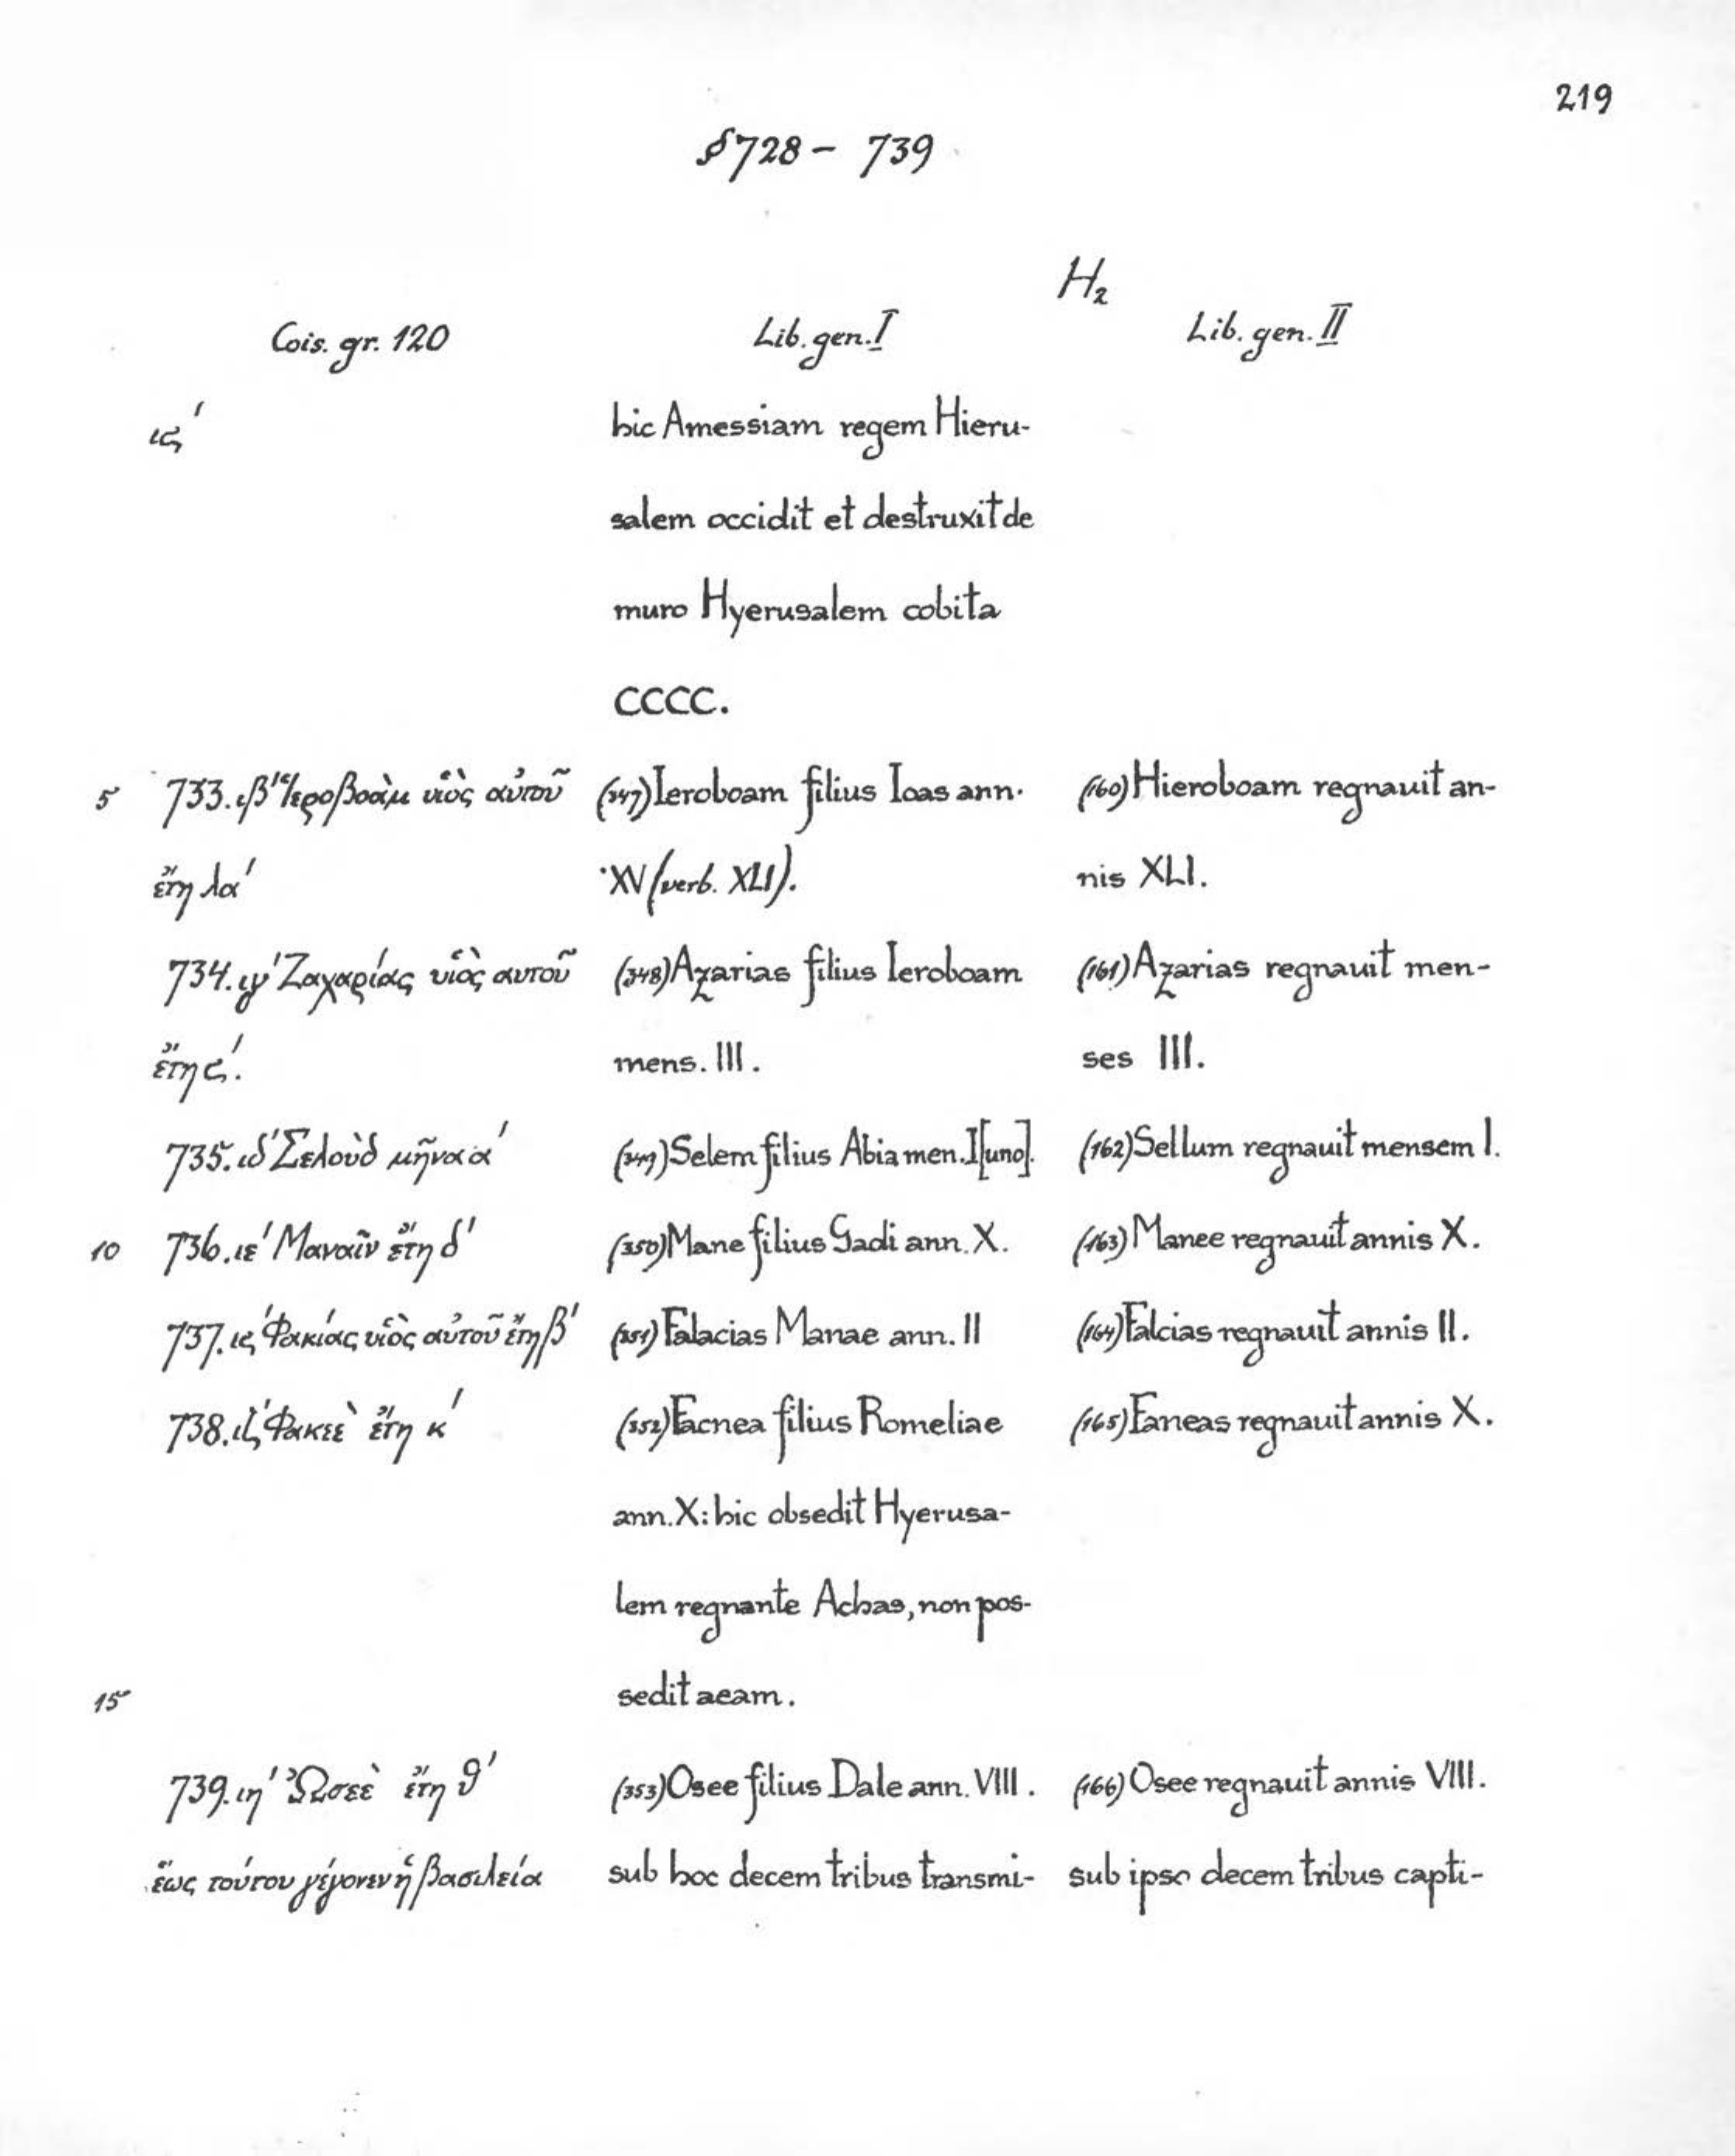 219
§ 728 - 739
H₂
Cois. gr. 120 Lib. gen. I Lib. gen. II
ις´ hic Amessiam regem Hieru-
salem occidit et destruxit de
muro Hyerusalem cobita
CCCC.
5 733. ιβ´ Ἱεροβοὰμ υἱὸς αὐτοῦ (347) Ieroboam filius Ioas ann. (160) Hieroboam regnauit an-
ἔτη λα´ XV (verb. XLI). nis XLI.
734. ιγ´ Ζαχαρίας υἱὸς αυτοῦ (348) Azarias filius Ieroboam (161) Azarias regnauit men-
ἔτη ς´. mens. III. ses III.
735. ιδ´ Σελοὺδ μῆνα α´ (349) Selem filius Abia men. I [uno]. (162) Sellum regnauit mensem I.
10 736. ιε´ Μαναῒν ἔτη δ´ (350) Mane filius Gadi ann. X. (163) Manee regnauit annis X.
737. ις´ Φακίας υἱὸς αὐτοῦ ἔτη β´ (351) Falacias Manae ann. II (164) Falcias regnauit annis II.
738. ιζ´ Φακεὲ ἔτη κ´ (352) Facnea filius Romeliae (165) Faneas regnauit annis X.
ann. X: hic obsedit Hyerusa-
lem regnante Achas, non pos-
15 sedit aeam.
739. ιη´ Ὠσεὲ ἔτη θ´ (353) Osee filius Dale ann. VIII. (166) Osee regnauit annis VIII.
ἕως τούτου γέγονεν ἡ βασιλεία sub hoc decem tribus transmi- sub ipso decem tribus capti-